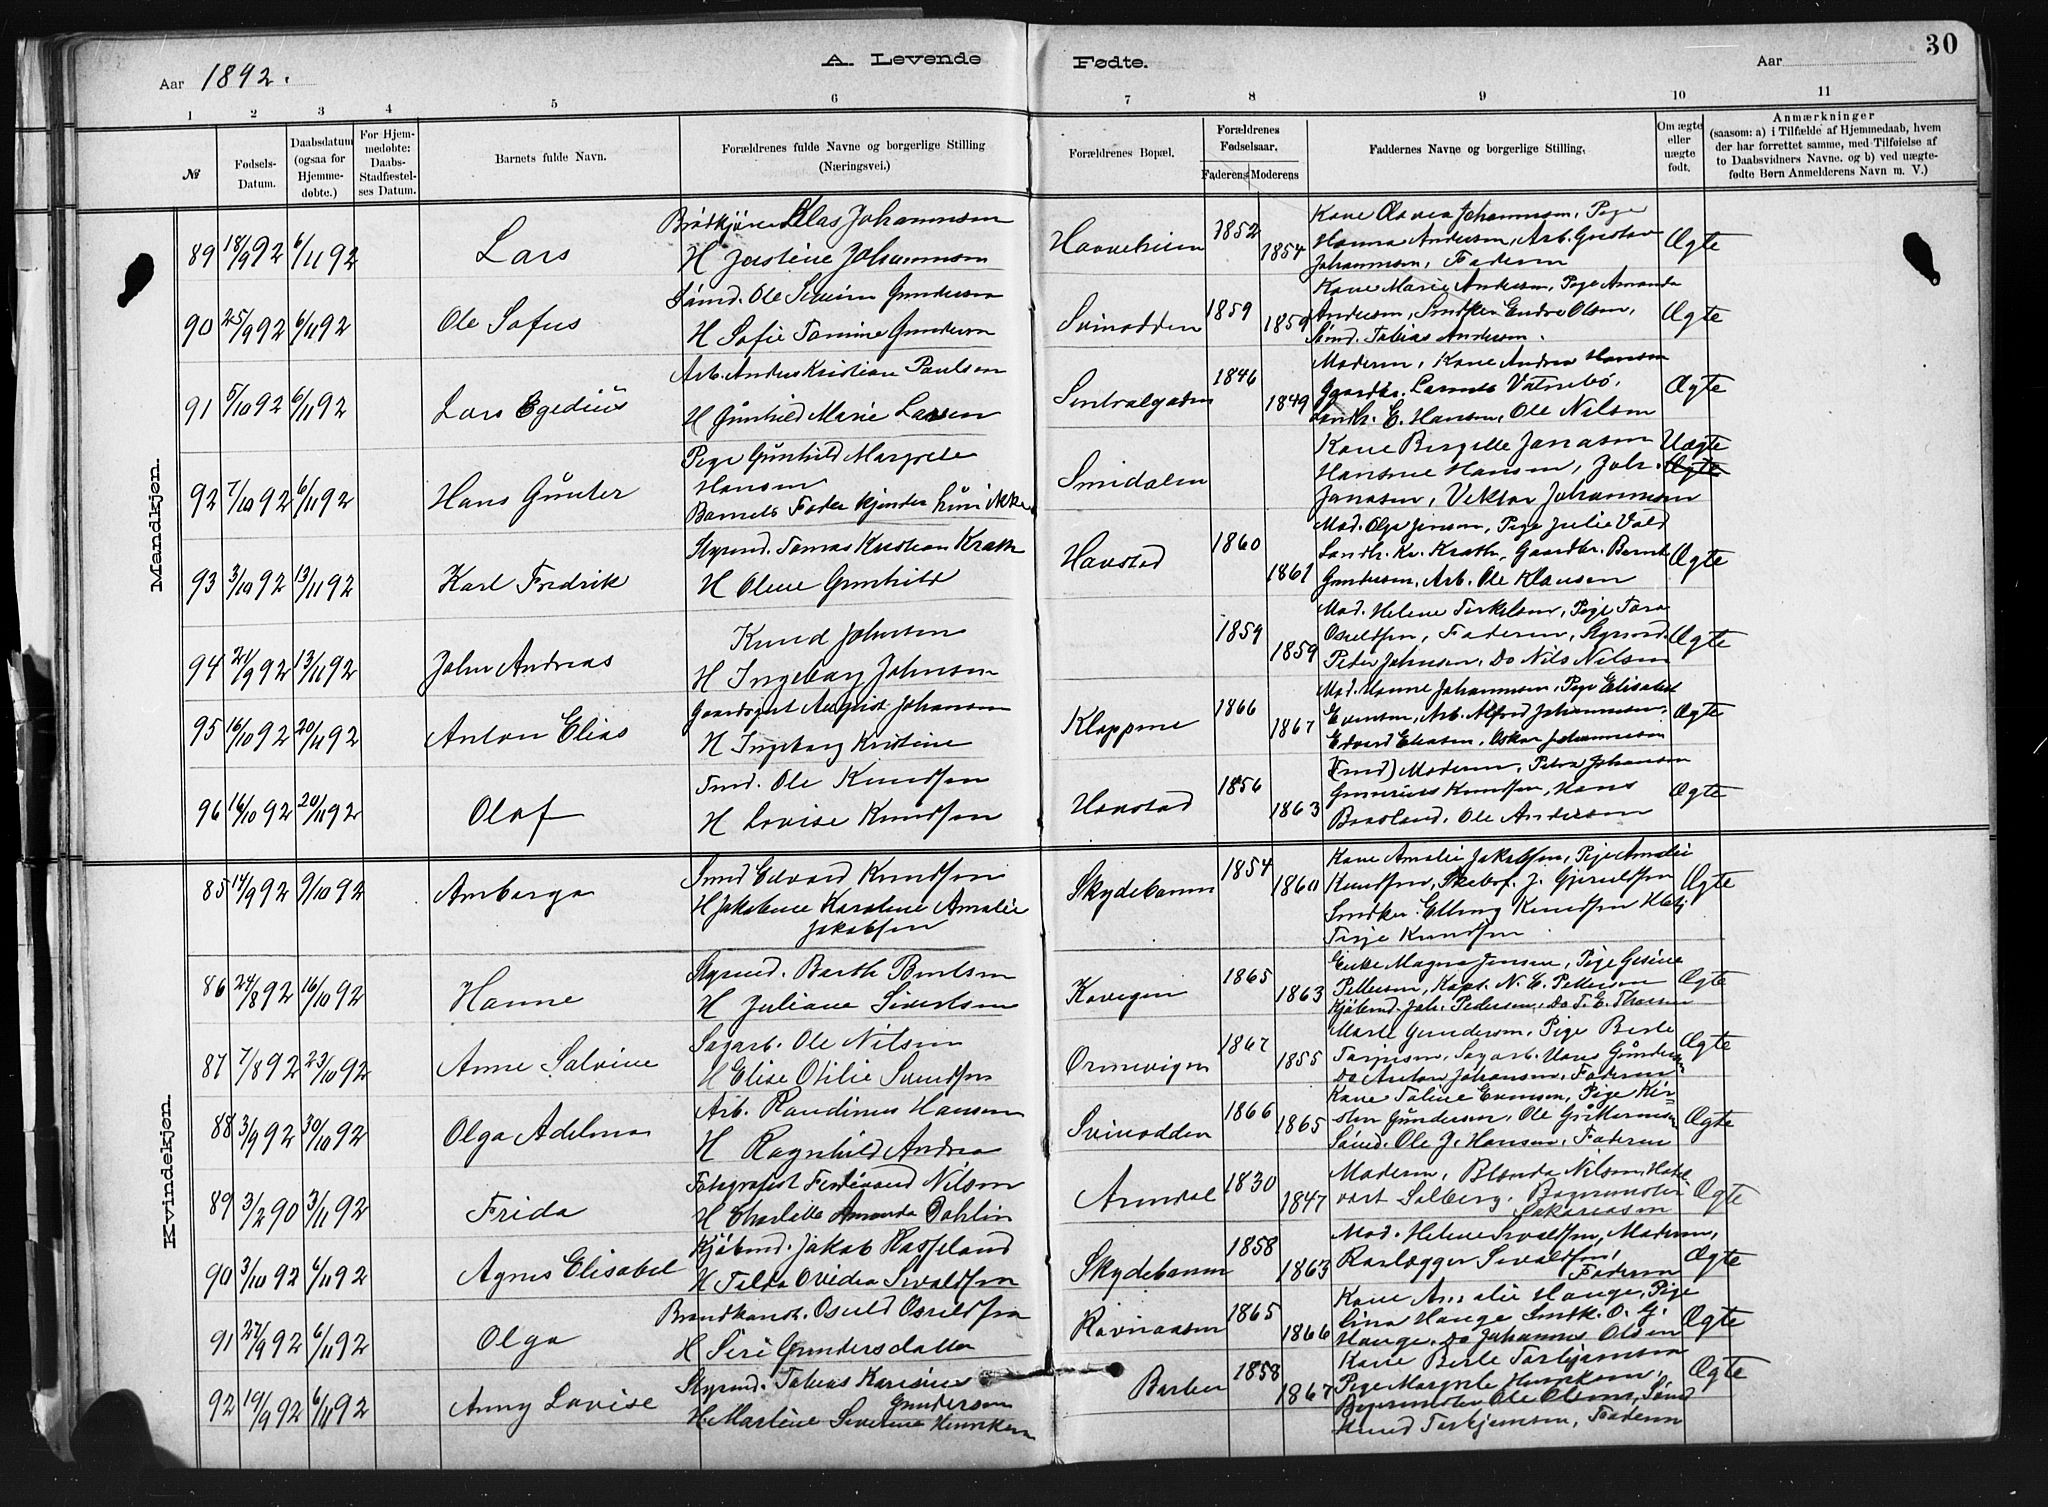 30
Aar 1892.
A. Levende Fødte.
Aar
1 2 3 4 5 6 7 8 9 10 11
№
Fødsels-Datum.
Daabsdatum (ogsaa for Hjemme-døbte.)
For Hjem-medøbte: Daabs-Stadfæstel-ses Datum.
Barnets fulde Navn.
Forældrenes fulde Navne og borgerlige Stilling (Næringsvei.)
Forældrenes Bopæl.
Forældrenes Fødselsaar.
Faderens Moderens
Faddernes Navne og borgerlige Stilling.
Om ægte eller uægte født.
Anmærkninger
(saasom: a) i Tilfælde af Hjemmedaab, hvem
der har forrettet samme, med Tilføielse af
to Daabsvidners Navne. og b) ved uægte-
fødte Børn Anmelderens Navn m. V.)
Mandkjøn.
89 18/9 92 6/11 92 Lars
Klas Johannesen
H Jostine Johannesen
1852 1854
Kone Johannesen, Pige
Hanna Andersen, Arb. Gustav
Johannesen, Faderen
Ægte
90 25/9 92 6/11 92 Ole Sofus
Sømd. Ole Gundersen
H Sofie Tomine Gundersen
Svinodden 1859 1859
Kone Marie Andersen, Pige Amanda
Andersen, Smdker Endre Olsen,
Sømd. Tobias Andersen.
Ægte
91 5/10 92 6/11 92 Lars Egedius
Arb. Anders Kristian Paulsen
H Gunhild Marie Larsen
1846 1849
Moderen, Kone Andrea Hansen
E. Hansen, Ole Nilsen
Ægte
92 7/10 92 6/11 92 Hans Günter
Pige Gunhild Margrete
Hansen
Barnets Fader kjender hun ikke
Smidalen
Kone Birgitte Jonasen
Hansine Hansen, Joh.
Jonasen, Viktor Johannesen
Uægte
Ægte
93 3/10 92 13/11 92 Karl Fredrik
Styrmd. Tomas Kristian
H Olene Gunhild
Havstad 1860 1861
Mad. Olga Jensen, Pige Julie
Gundersen, Arb. Ole Klausen
Ægte
94 21/9 92 13/11 92 John Andreas
Knud Johnsen
H Ingeborg Johnsen
1859 1859
Mad. Helene Terkelsen, Pige Tora
Faderen, Styrmd.
Peder Johnsen, Do Nils Nilsen
Ægte
95 16/10 92 20/11 92 Anton Elias
August Johansen
H Ingeborg Kristine
Klappene 1866 1867
Mad. Hanne Johannesen, Pige Elisabet
Evensen, Arb. Alfred Johannesen,
Edvard Eliasen, Oskar Johannesen
Ægte
96 16/10 92 20/11 92 Olaf
Ole Knudsen
H Lovise Knudsen
Havstad 1856 1863
Moderen, Petra Johansen
Gunerius Knudsen, Hans
Ole Andersen
Ægte
Kvindekjøn.
85 14/9 92 9/10 92 Amborga
Smed Edvard Knudsen
H Jakobine Karoline Amalie
Jakobsen
Skydebanen 1854 1860
Kone Amalie Jakobsen, Pige Amalie
Knudsen, J. Gjeruldsen
Smdker. Elling Knudsen
Terje Knudsen
Ægte
86 24/8 92 16/10 92 Hanne
Styrmd. Barth Bertelsen
H Juliane Sivertsen
Kovigen 1865 1863
Enke Magna Jensen, Pige Gesine
Pettersen, Kapt. N. E. Pettersen
Kjøbmd. Joh. Pedersen, Do T. E.
Ægte
87 7/8 92 23/10 92 Anne Salvine
Sagarb. Ole Nilsen
H Elise Otilie Svendsen
Ormevigen 1867 1855
Marte Gundersen, Pige Berte
Sagarb. Hans Gundersen
Do Anton Johansen, Faderen
Ægte
88 3/9 92 30/10 92 Olga Adelma
Arb. Randinus Hansen
H Ragnhild Andrea
Svinodden 1866 1865
Kone Taline Evensen, Pige Kir-
sten Gundersen, Ole
Sømd. Ole J. Hansen, Faderen
Ægte
89 3/2 90 3/11 92 Frida
Fotografist Ferdinand Nilsen
H Charlotte Amanda Dahlin
Arendal 1830 1847
Moderen, Blenda Nilsen,
Solberg, Bogermester
Sakariasen
Ægte
90 3/10 92 6/11 92 Agnes Elisabet
Kjøbmd. Jakob Rasseland
H Tilda Ovidia Sivaldsen
Skydebanen 1858 1863
Mad. Helene Sivaldsen, Moderen,
Sivaldsen,
Faderen
Ægte
91 27/9 92 6/11 92 Olga
Osuld Osuldsen
H Siri Gundersdatter
Ravnaasen 1865 1866
Kone Amalie Hauge, Pige
Lina Hauge Smdk. O. G.
Hauge, Do Johannes Olsen
Ægte
92 19/9 92 6/11 92 Anny Lovise
Styrmd. Tobias
Gundersen
H. Martine Severine Henriksen
Barbu 1858 1867
Kone Berte Torbjørnsen
Pige Margrete Henriksen,
Ole Olsen, Sømd
Knud Terkjernsen, Faderen
Ægte